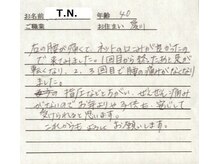 お名前 T.N. 年齢 40
ご職業 お住まい 愛川
右の腰が痛くて、ネットの口コミが良かったの
で来てみました。1回目から捻ったあと足が
軽くなり、2、3回目で腰の痛みがなくなり
ました。
指圧などとちがい、ぜんぜん痛み
がないので お年よりや子供も安心して
受けられると思います。
これからもよろしくお願いします。